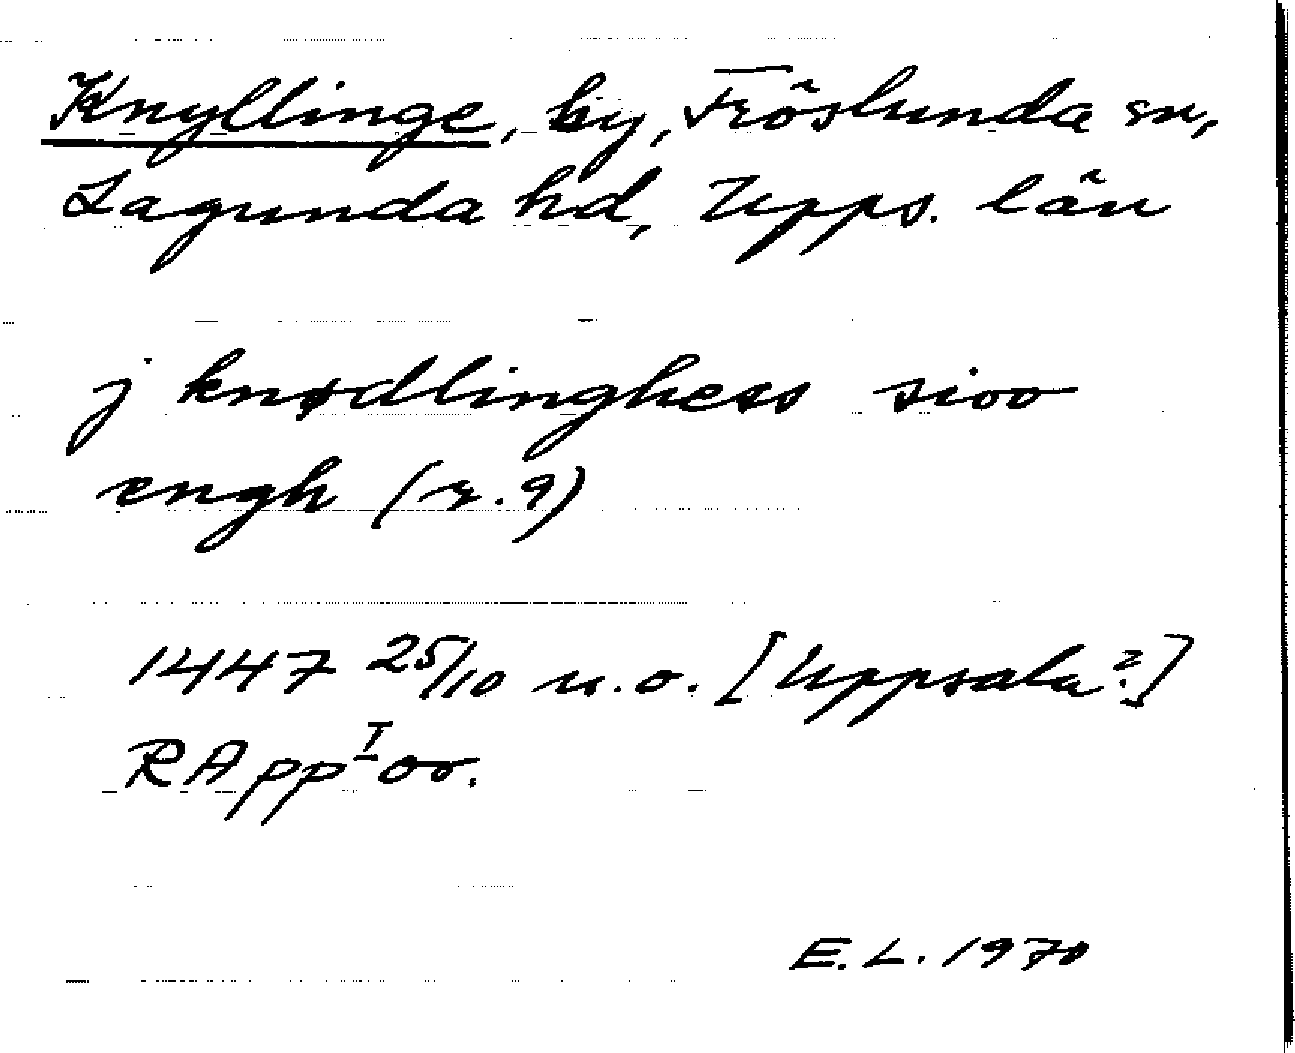 Knyllinge, by, Fröslunda sn,
Lagunda hd, Upps. län
j knødlinghess sioo
engh (r. 9)
1447 25/10 u.o. [Uppsala?]
RApp I or.
E.L. 1970